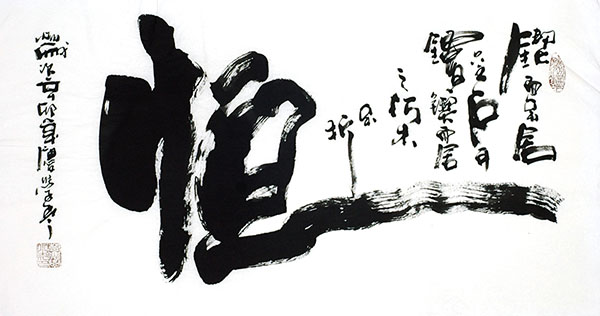 恒
鍥而不舍
金石可
鏤鍥而舍
之朽木
不
折
歲次辛卯